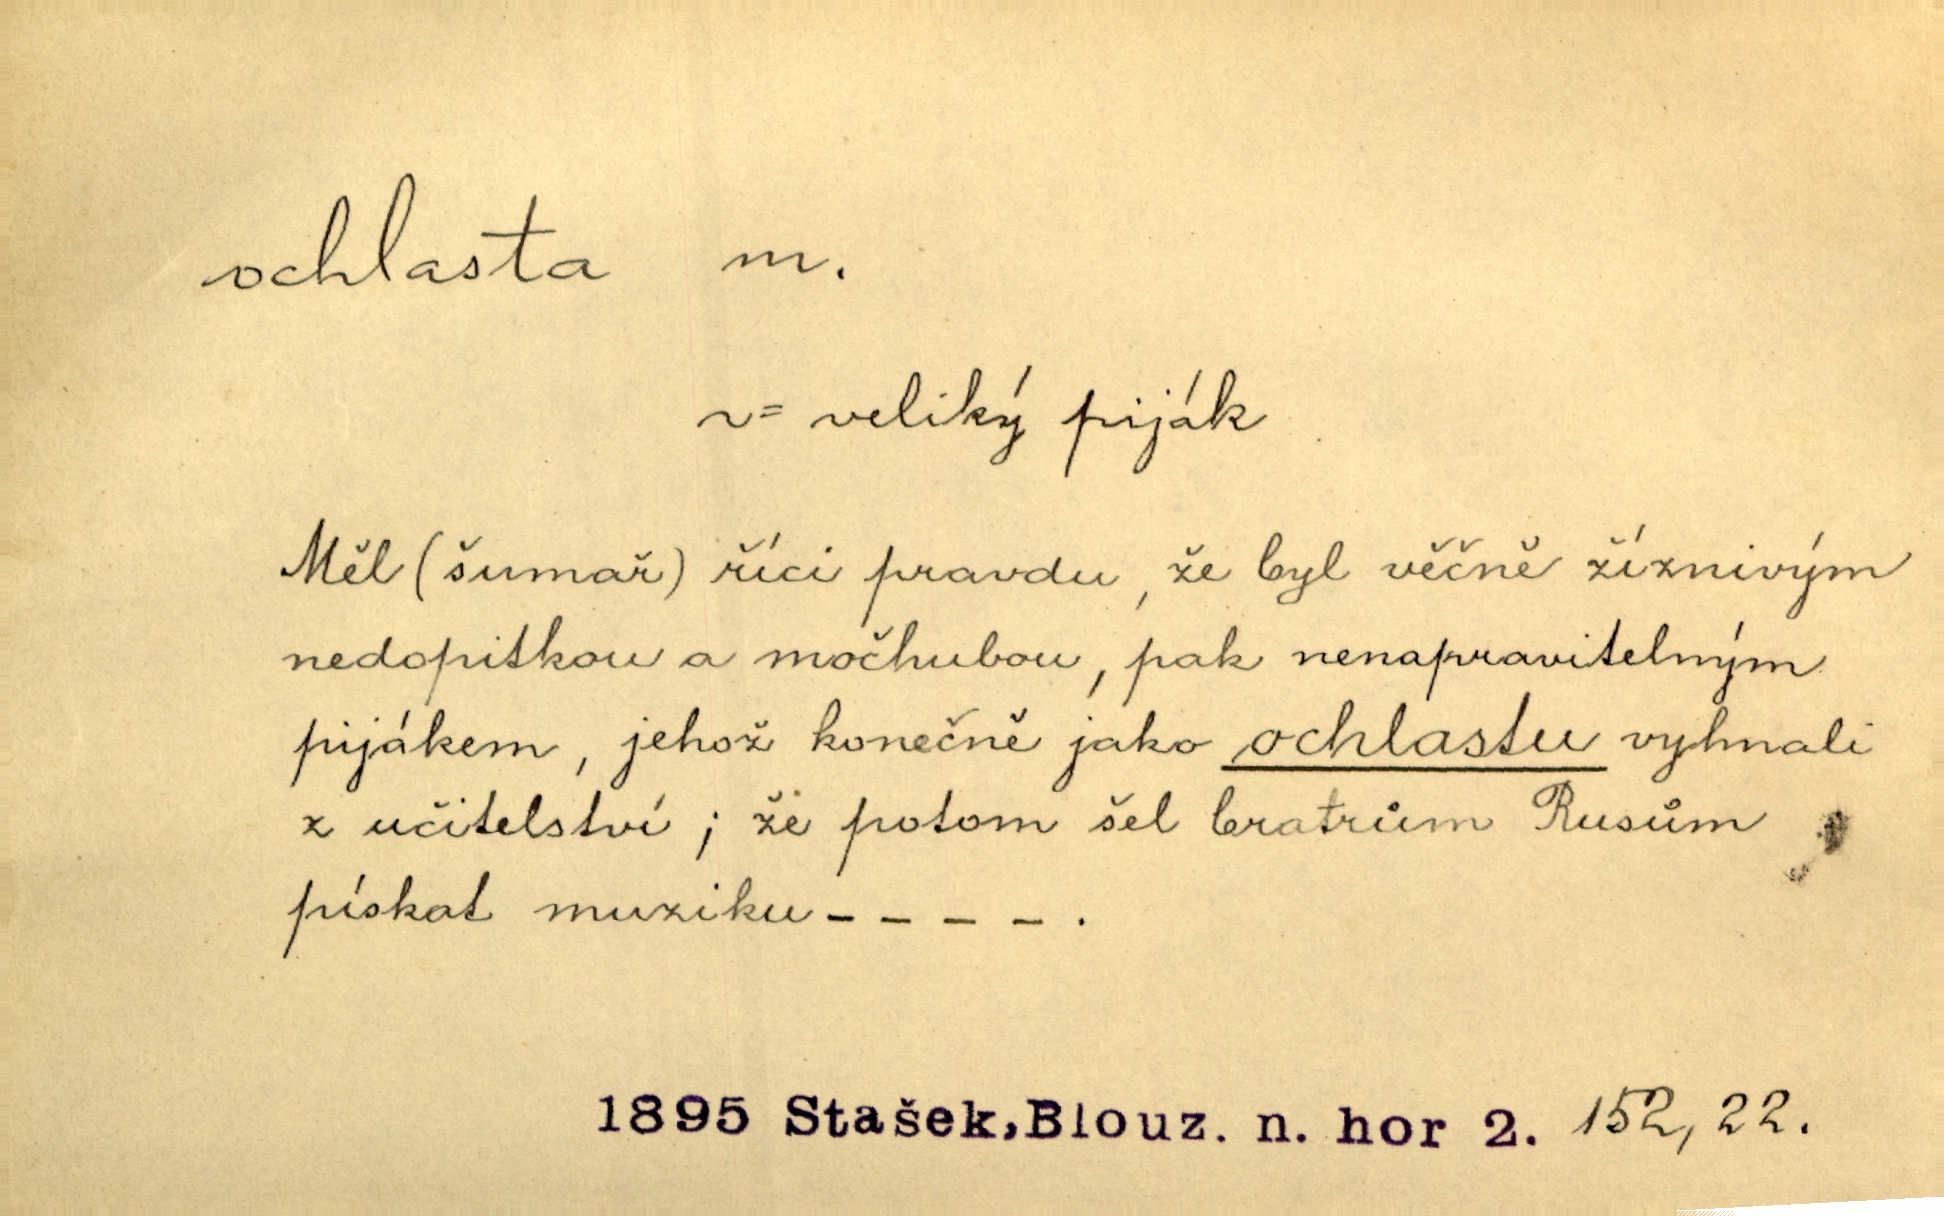 ochlasta m.
v= veliký piják
Měl (šumař) říci pravdu, že byl věčně žíznivým
nedopitkou a močhubou, pak nenapravitelným
pijákem, jehož konečně jako ochlastu vyhnali
z učitelství; že potom šel bratrům Rusům
pískat muziku – – – – .
1895 Stašek,Blouz. n. hor 2. 152, 22.